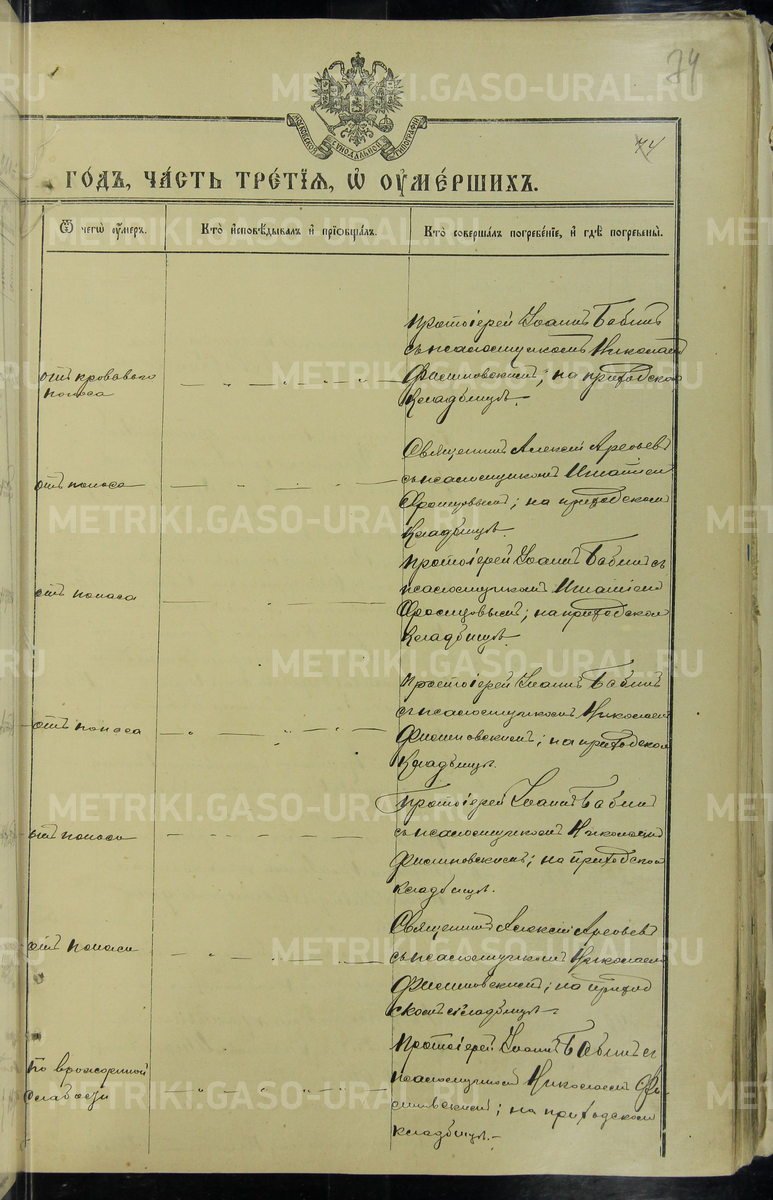 74
74
МОСКОВСКОЙ СѴНОДАЛЬНОЙ ТИПОГРАФІИ
ГОДЪ, ЧАСТЬ ТРЕТІЯ, Ѡ ОУМЕРШИХЪ.
Ѿ чегѡ оумеръ.
Кто исповѣдывалъ и пріобщалъ.
Кто совершалъ погребеніе, и гдѣ погребены.
отъ кроваваго
поноса
Протоіерей Іоаннъ Бабинъ
съ псаломщикомъ Николаемъ
на приходском
кладбищѣ.
отъ поноса
Священникъ Алексій Арефьевъ
съ псаломщикомъ Игнатіем
на приходском
кладбищѣ.
отъ поноса
Протоіерей Іоаннъ Бабинъ съ
псаломщикомъ Игнатіем
на приходском
кладбищѣ.
отъ поноса
Протоіерей Іоаннъ Бабинъ
съ псаломщикомъ Николаем
на приходском
кладбищѣ.
отъ поноса
Протоіерей Іоаннъ Бабинъ
съ псаломщикомъ Николаем
на приходском
кладбищѣ.
отъ поноса
Священникъ Алексій Арефьевъ
съ псаломщикомъ Николаем
на приход
скомъ кладбищѣ.
по врожденной
слабости
Протоіерей Іоаннъ Бабинъ съ
псаломщикомъ Николаемъ
на приходском
кладбищѣ.
METRIKI.GASO-URAL.RU